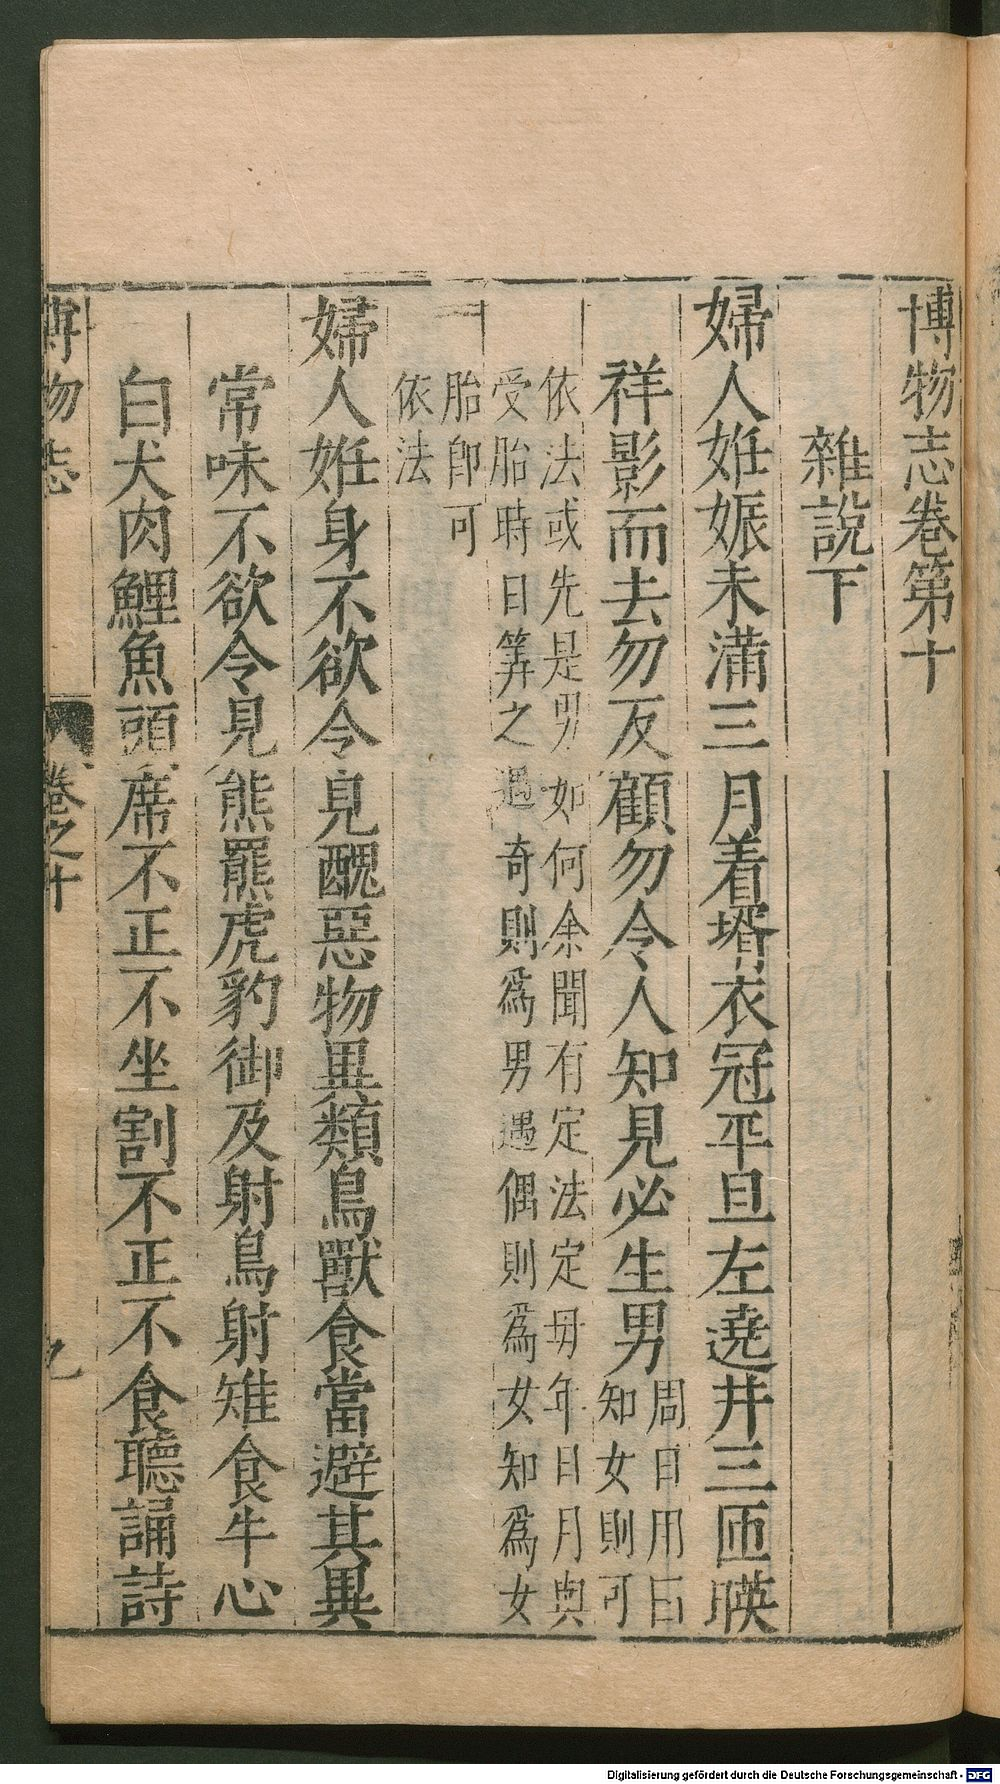 博物志卷第十
雜說下
婦人姙娠未滿三月着壻衣冠平旦左遶井三匝暎
祥影而去勿反顧勿令人知見必生男
周日用曰
知女則可
依法或先是男如何余聞有定法定母年日月與
受胎時日筭之遇奇則爲男遇偶則爲女知爲女
胎卽可
依法
婦人姙身不欲令見醜惡物異類鳥獸食當避其異
常味不欲令見熊羆虎豹御及射鳥射雉食牛心
白犬肉鯉魚頭席不正不坐割不正不食聽誦詩
博物志
卷之十
Digitalisierung gefördert durch die Deutsche Forschungsgemeinschaft - DFG